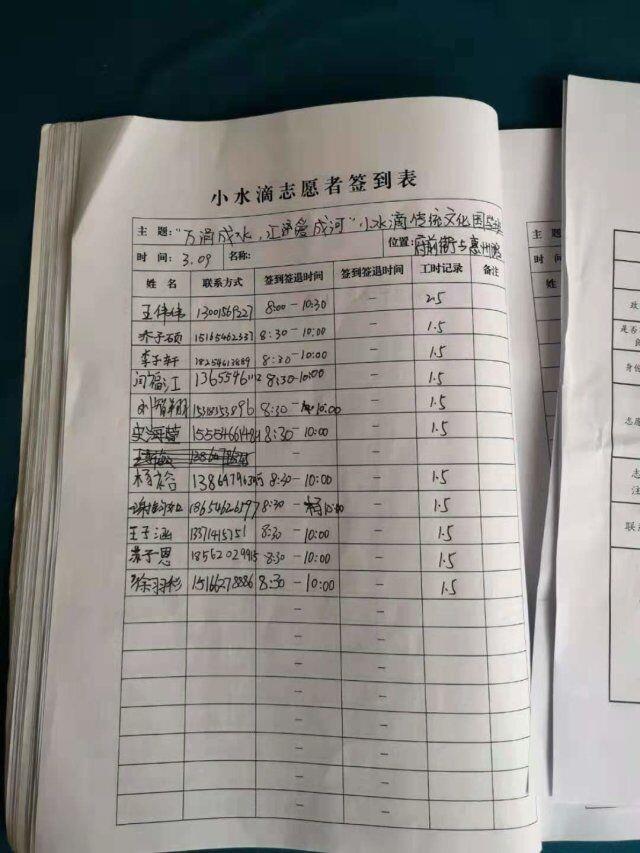 小水滴志愿者签到表
主 题："万涓成水，汇爱成河"小水滴传统文化
位置：府前街与惠州
时 间：3.09 名称：
姓 名 联系方式 签到签退时间 签到签退时间 工时记录 备注
王伟伟 8:00-10:30 - 2.5
乔子硕 15165462337 8:30-10:00 - 1.5
李子轩 18254613889 8:30-10:00 - 1.5
闫福江 8:30-10:00 - 1.5
刘 8:30-10:00 - 1.5
史海 8:30-10:00 - 1.5
-
杨裕 8:30-10:00 - 1.5
8:30-10:00 - 1.5
王子涵 8:30-10:00 - 1.5
苏子恩 18562029915 8:30-10:00 - 1.5
徐羽彤 15166278886 8:30-10:00 - 1.5
- -
- -
- -
- -
- -
- -
- -
- -
时 间
姓
政
是否
身份
志愿
志
注
联系